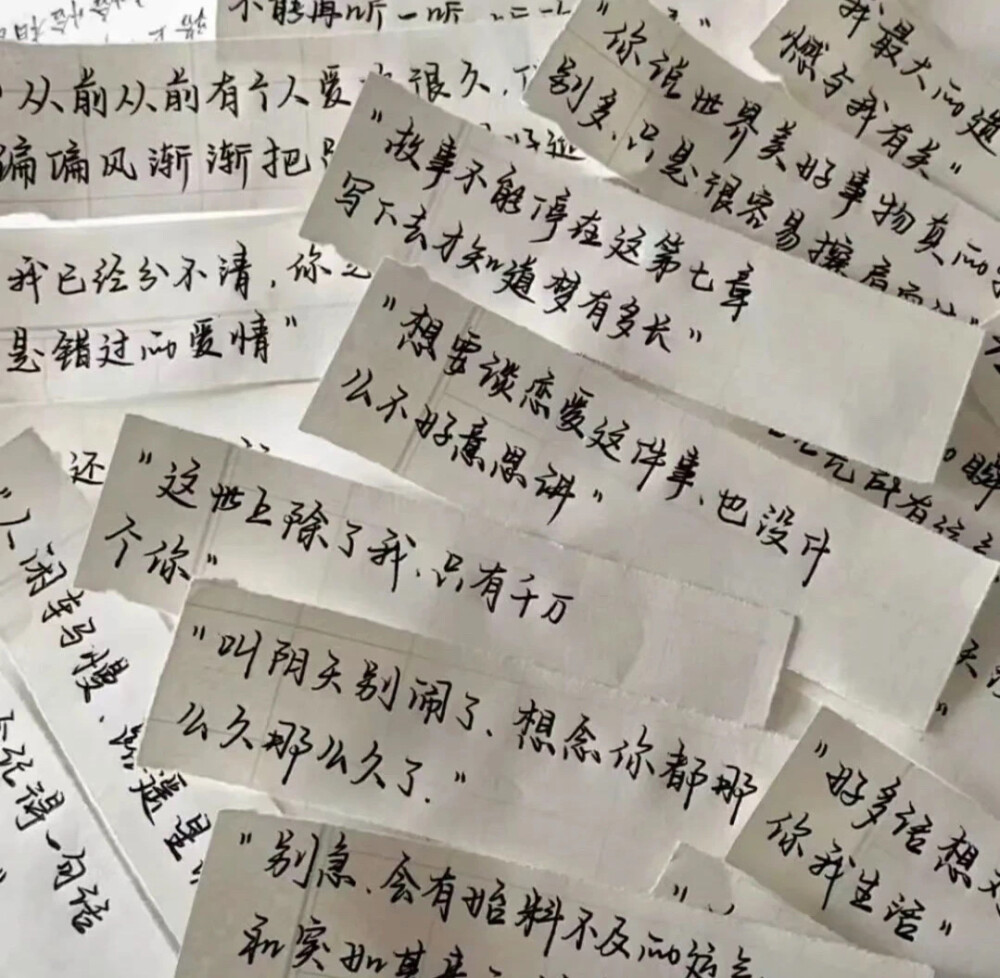 不能再听一听
从前从前有个人爱你很久,
偏偏风渐渐把
我最大的遗
憾与我有关"
"你说世界美好事物真的
别多、只是很容易擦肩而过"
"故事不能停在这第七章
写下去才知道梦有多长"
我已经分不清,你
是错过的爱情"
"想要谈恋爱这件事、也没什
么不好意思讲"
还
"这世上除了我、只有千万
个你"
"人闹车马慢、路遥星
得一句话
"叫阴天别闹了、想念你都那
么久那么久了."
"好多话想
你我生活"
"别急、会有始料不及的运气
和突如其来